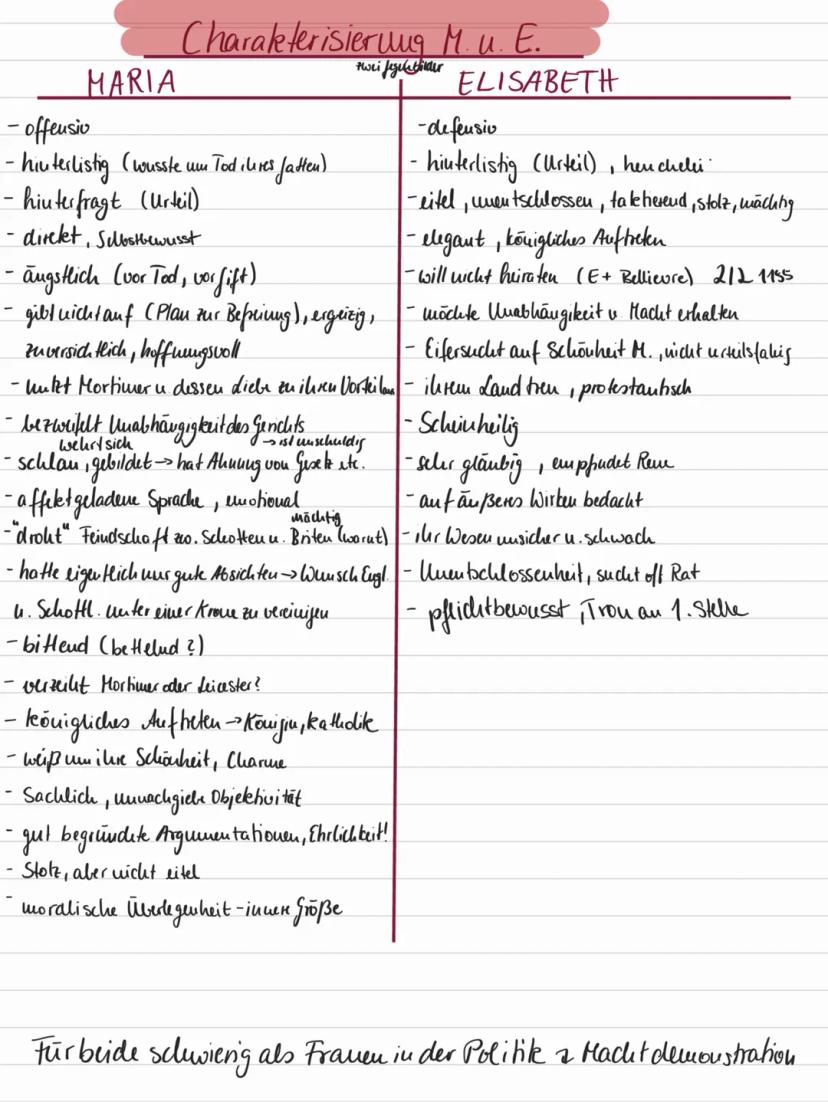 Charakterisierung M. u. E.
zwei Gegenbilder
MARIA
ELISABETH
- offensiv
- hinterlistig (wusste um Tod ihres Gatten)
- hinterfragt (Urteil)
- direkt, Selbstbewusst
- ängstlich (vor Tod, vor Gift)
- gibt nicht auf (Plan zur Befreiung), ergeizig,
zuversichtlich, hoffnungsvoll
- nutzt Mortimer u dessen Liebe zu ihren Vorteil aus
- bezweifelt Unabhängigkeit des Gerichts
wehrt sich → ist unschuldig
- schlau, gebildet → hat Ahnung von Gesetz etc.
- affektgeladene Sprache, emotional
mächtig
- "droht" Feindschaft zw. Schotten u. Briten (warnt)
- hatte eigentlich nur gute Absichten → Wunsch Engl.
u. Schottl. unter einer Krone zu vereinigen
- bittend (bettelnd?)
- verzeiht Mortimer oder Leicester?
- königliches Auftreten → Königin, katholik
- weiß um ihre Schönheit, Charme
- Sachlich, unnachgieb. Objektivität
- gut begründete Argumentationen, Ehrlichkeit!
- Stolz, aber nicht eitel
- moralische Überlegenheit - innere Größe
- defensiv
- hinterlistig (Urteil), heuchelei
- eitel, unentschlossen, taktierend, stolz, mächtig
- elegant, königliches Auftreten
- will nicht heiraten (E + Bellievre) 2/2 1155
- möchte Unabhängigkeit u Macht erhalten
- Eifersucht auf Schönheit M., nicht urteilsfähig
- ihrem Land treu, protestantisch
- Scheinheilig
- sehr gläubig, empfindet Reue
- auf äußeres Wirken bedacht
- ihr Wesen unsicher u. schwach
- Unentschlossenheit, sucht oft Rat
- pflichtbewusst, Tron an 1. Stelle
Für beide schwierig als Frauen in der Politik & Machtdemonstration